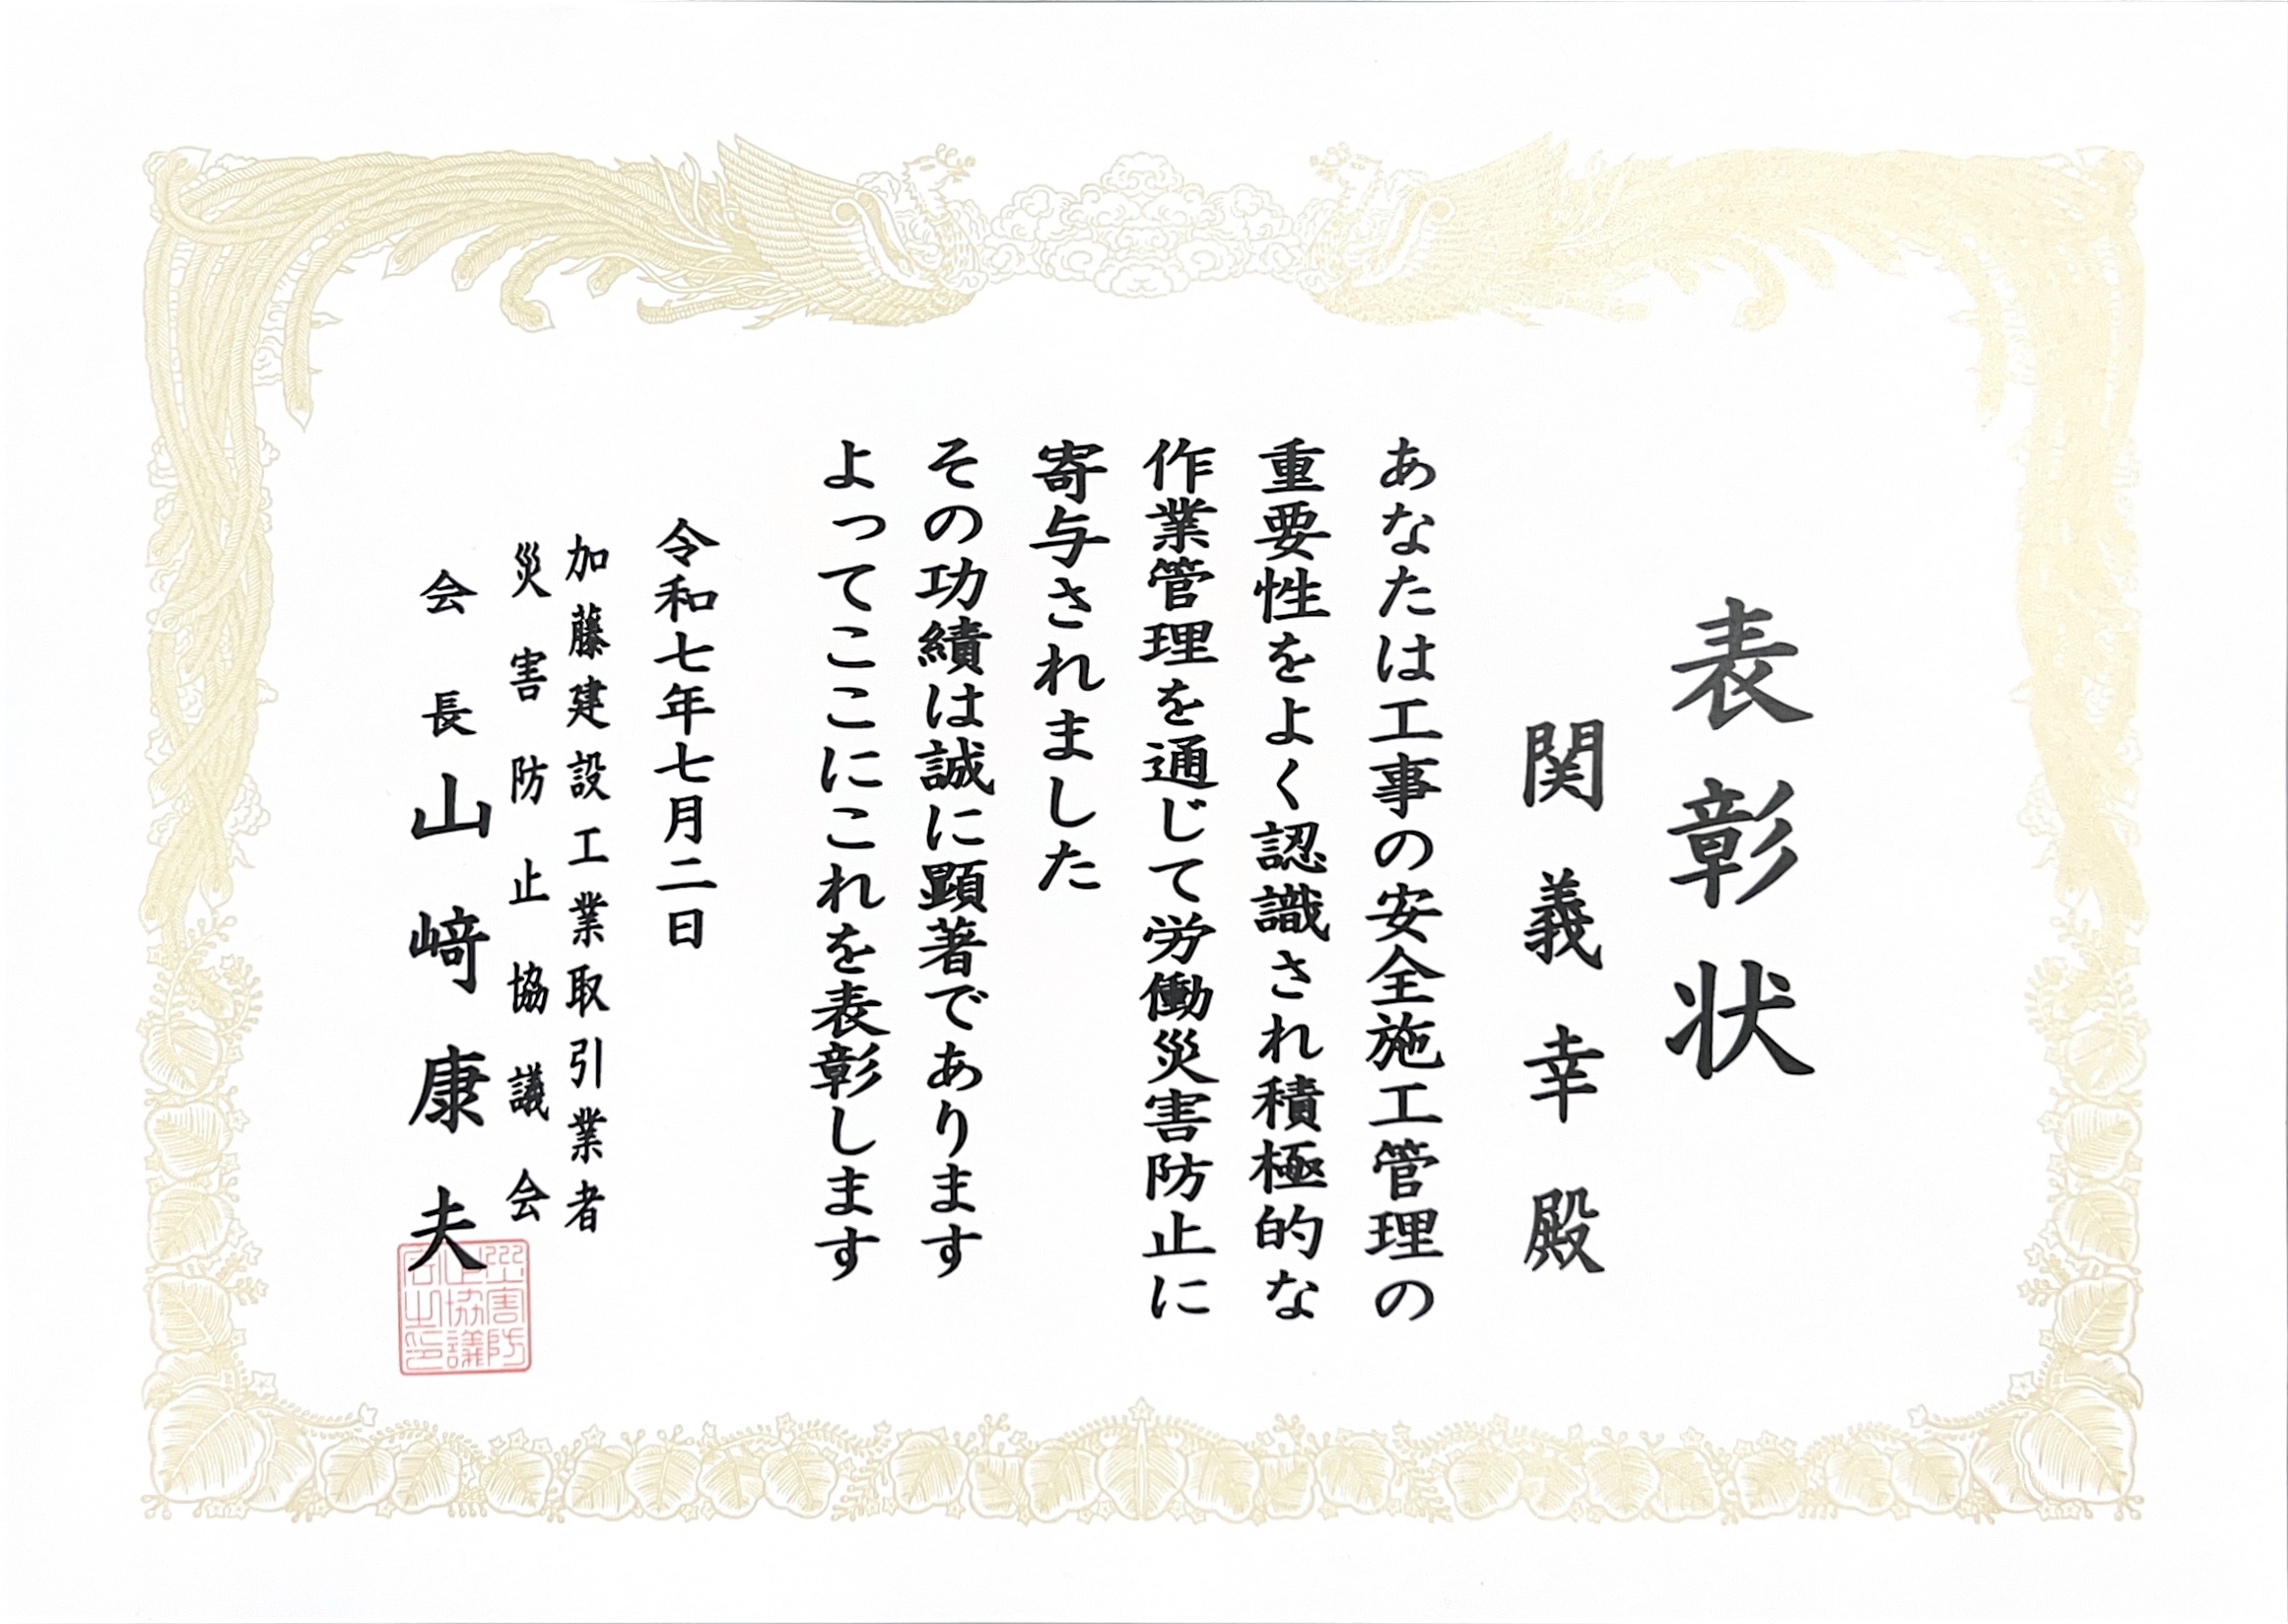 表彰状
関義幸殿
あなたは工事の安全施工管理の
重要性をよく認識され積極的な
作業管理を通じて労働災害防止に
寄与されました
その功績は誠に顕著であります
よってここにこれを表彰します
令和七年七月二日
加藤建設工業取引業者
災害防止協議会
会長山﨑康夫
災害防
止協議
会之印